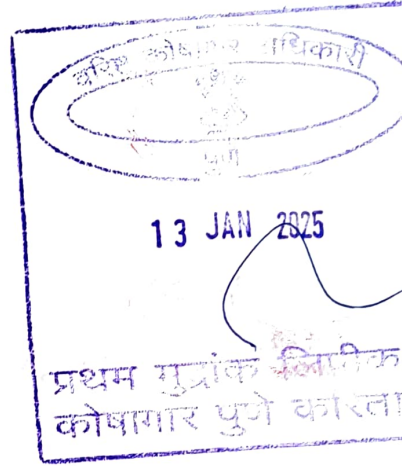 वरिष्ठ कोषागार अधिकारी
पुणे
13 JAN 2025
प्रथम मुद्रांक लिपीक
कोषागार पुणे करिता